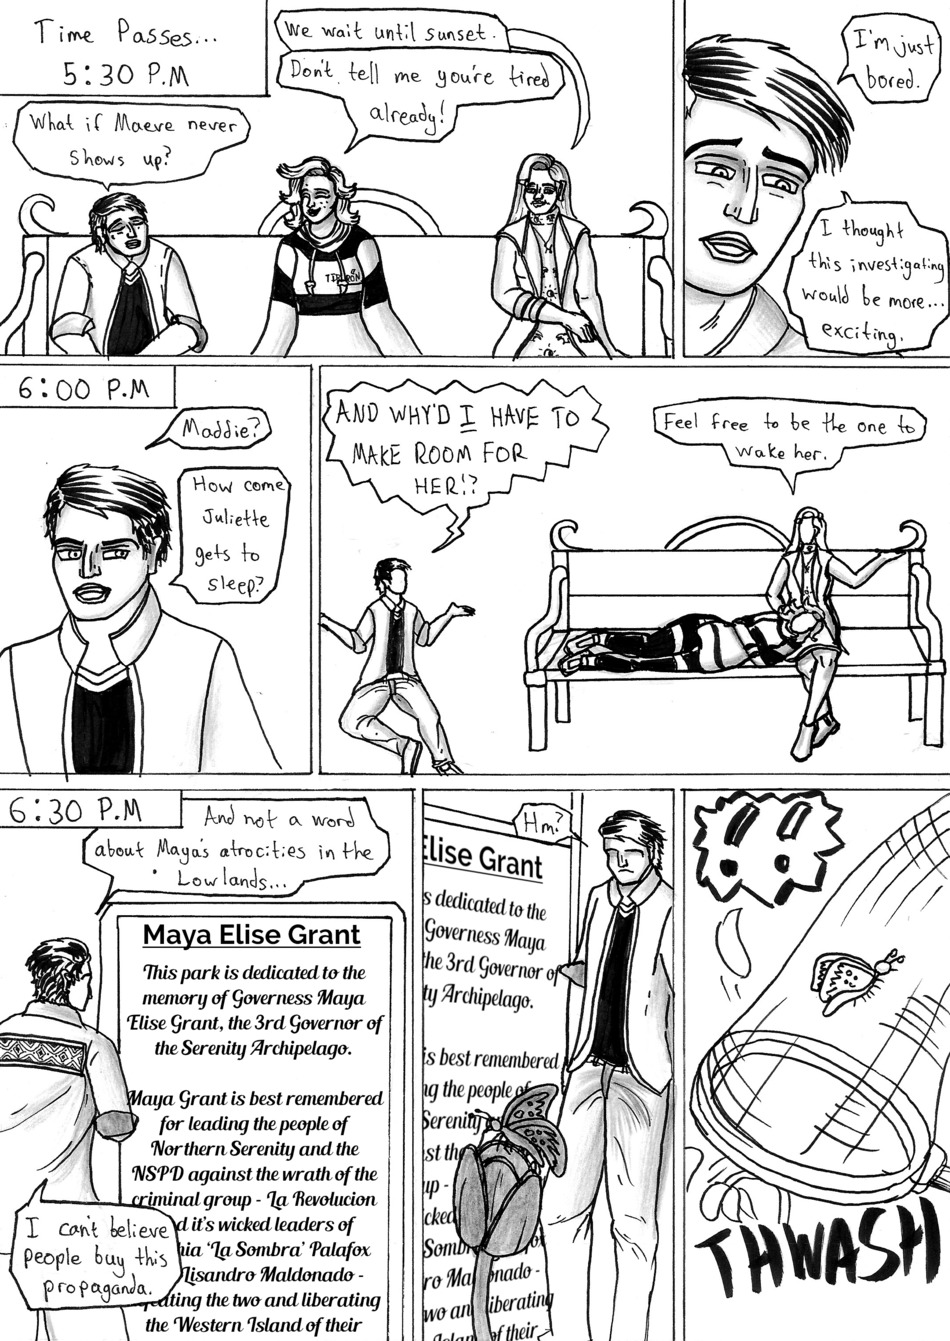 Time Passes...
5:30 P.M
What if Maeve never
shows up?
We wait until sunset.
Don't tell me you're tired
already!
TIBURÓN
I'm just
bored.
I thought
this investigating
would be more...
exciting.
6:00 P.M
Maddie?
How come
Juliette
gets to
sleep?
AND WHY'D I HAVE TO
MAKE ROOM FOR
HER!?
Feel free to be the one to
wake her.
6:30 P.M
And not a word
about Maya's atrocities in the
Lowlands...
Maya Elise Grant
This park is dedicated to the
memory of Governess Maya
Elise Grant, the 3rd Governor of
the Serenity Archipelago.
Maya Grant is best remembered
for leading the people of
Northern Serenity and the
NSPD against the wrath of the
criminal group - La Revolucion
d it's wicked leaders of
hia 'La Sombra' Palafox
Lisandro Maldonado -
eating the two and liberating
the Western Island of their
I can't believe
people buy this
propaganda.
Hm?
Elise Grant
s dedicated to the
Governess Maya
the 3rd Governor of
ty Archipelago.
is best remembered
ng the people of
Serenity
st the
up -
cked
Sombr fox
ro Mal onado -
wo an liberating
Islan of their
!!
THWASH